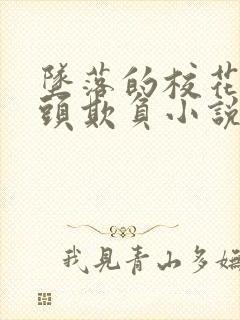 墜落的校花
頭欺負小說
我見青山多嫵